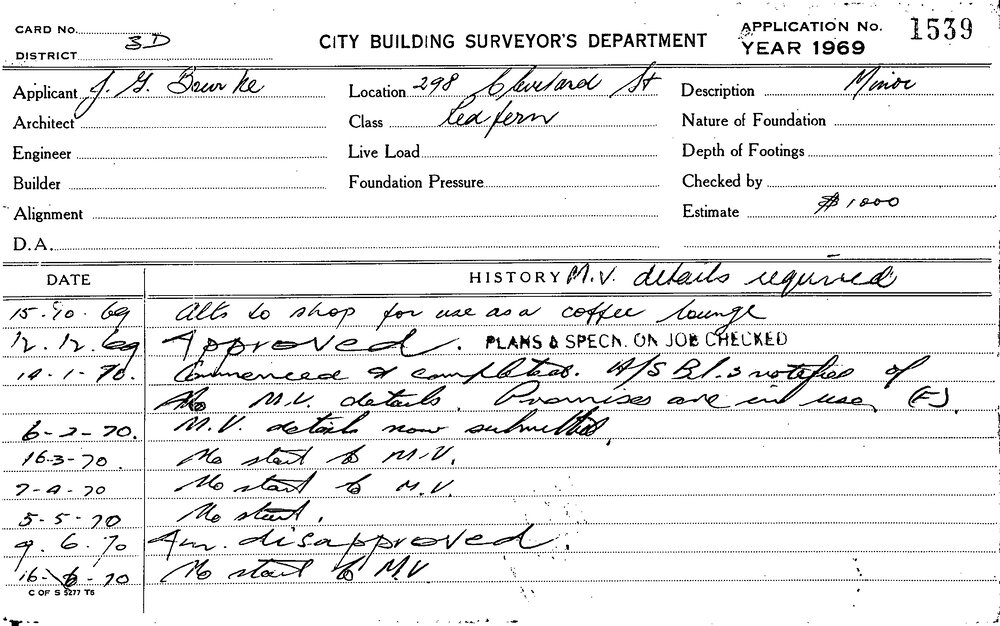 CARD No.
3D
DISTRICT
CITY BUILDING SURVEYOR'S DEPARTMENT
APPLICATION No. 1539
YEAR 1969
Applicant J. G. Bourke
Location 298 Cleveland St
Description Minor
Architect
Class Redfern
Nature of Foundation
Engineer
Live Load
Depth of Footings
Builder
Foundation Pressure
Checked by
Alignment
Estimate $1000
D.A.
DATE
HISTORY M.V. details required
15.10.69 Alts to shop for use as a coffee lounge
12.12.69 Approved. PLANS & SPECN. ON JOB CHECKED
14-1-70. Commenced & completed. A/S B.I.s notified of
No M.V. details. Premises are in use. (F).
6-2-70. M.V. details now submitted.
16-3-70. No start to M.V.
7-4-70 No start to M.V.
5-5-70 No start.
9.6.70 Am. disapproved.
16-6-70 No start to M.V
C OF S 5277 T6